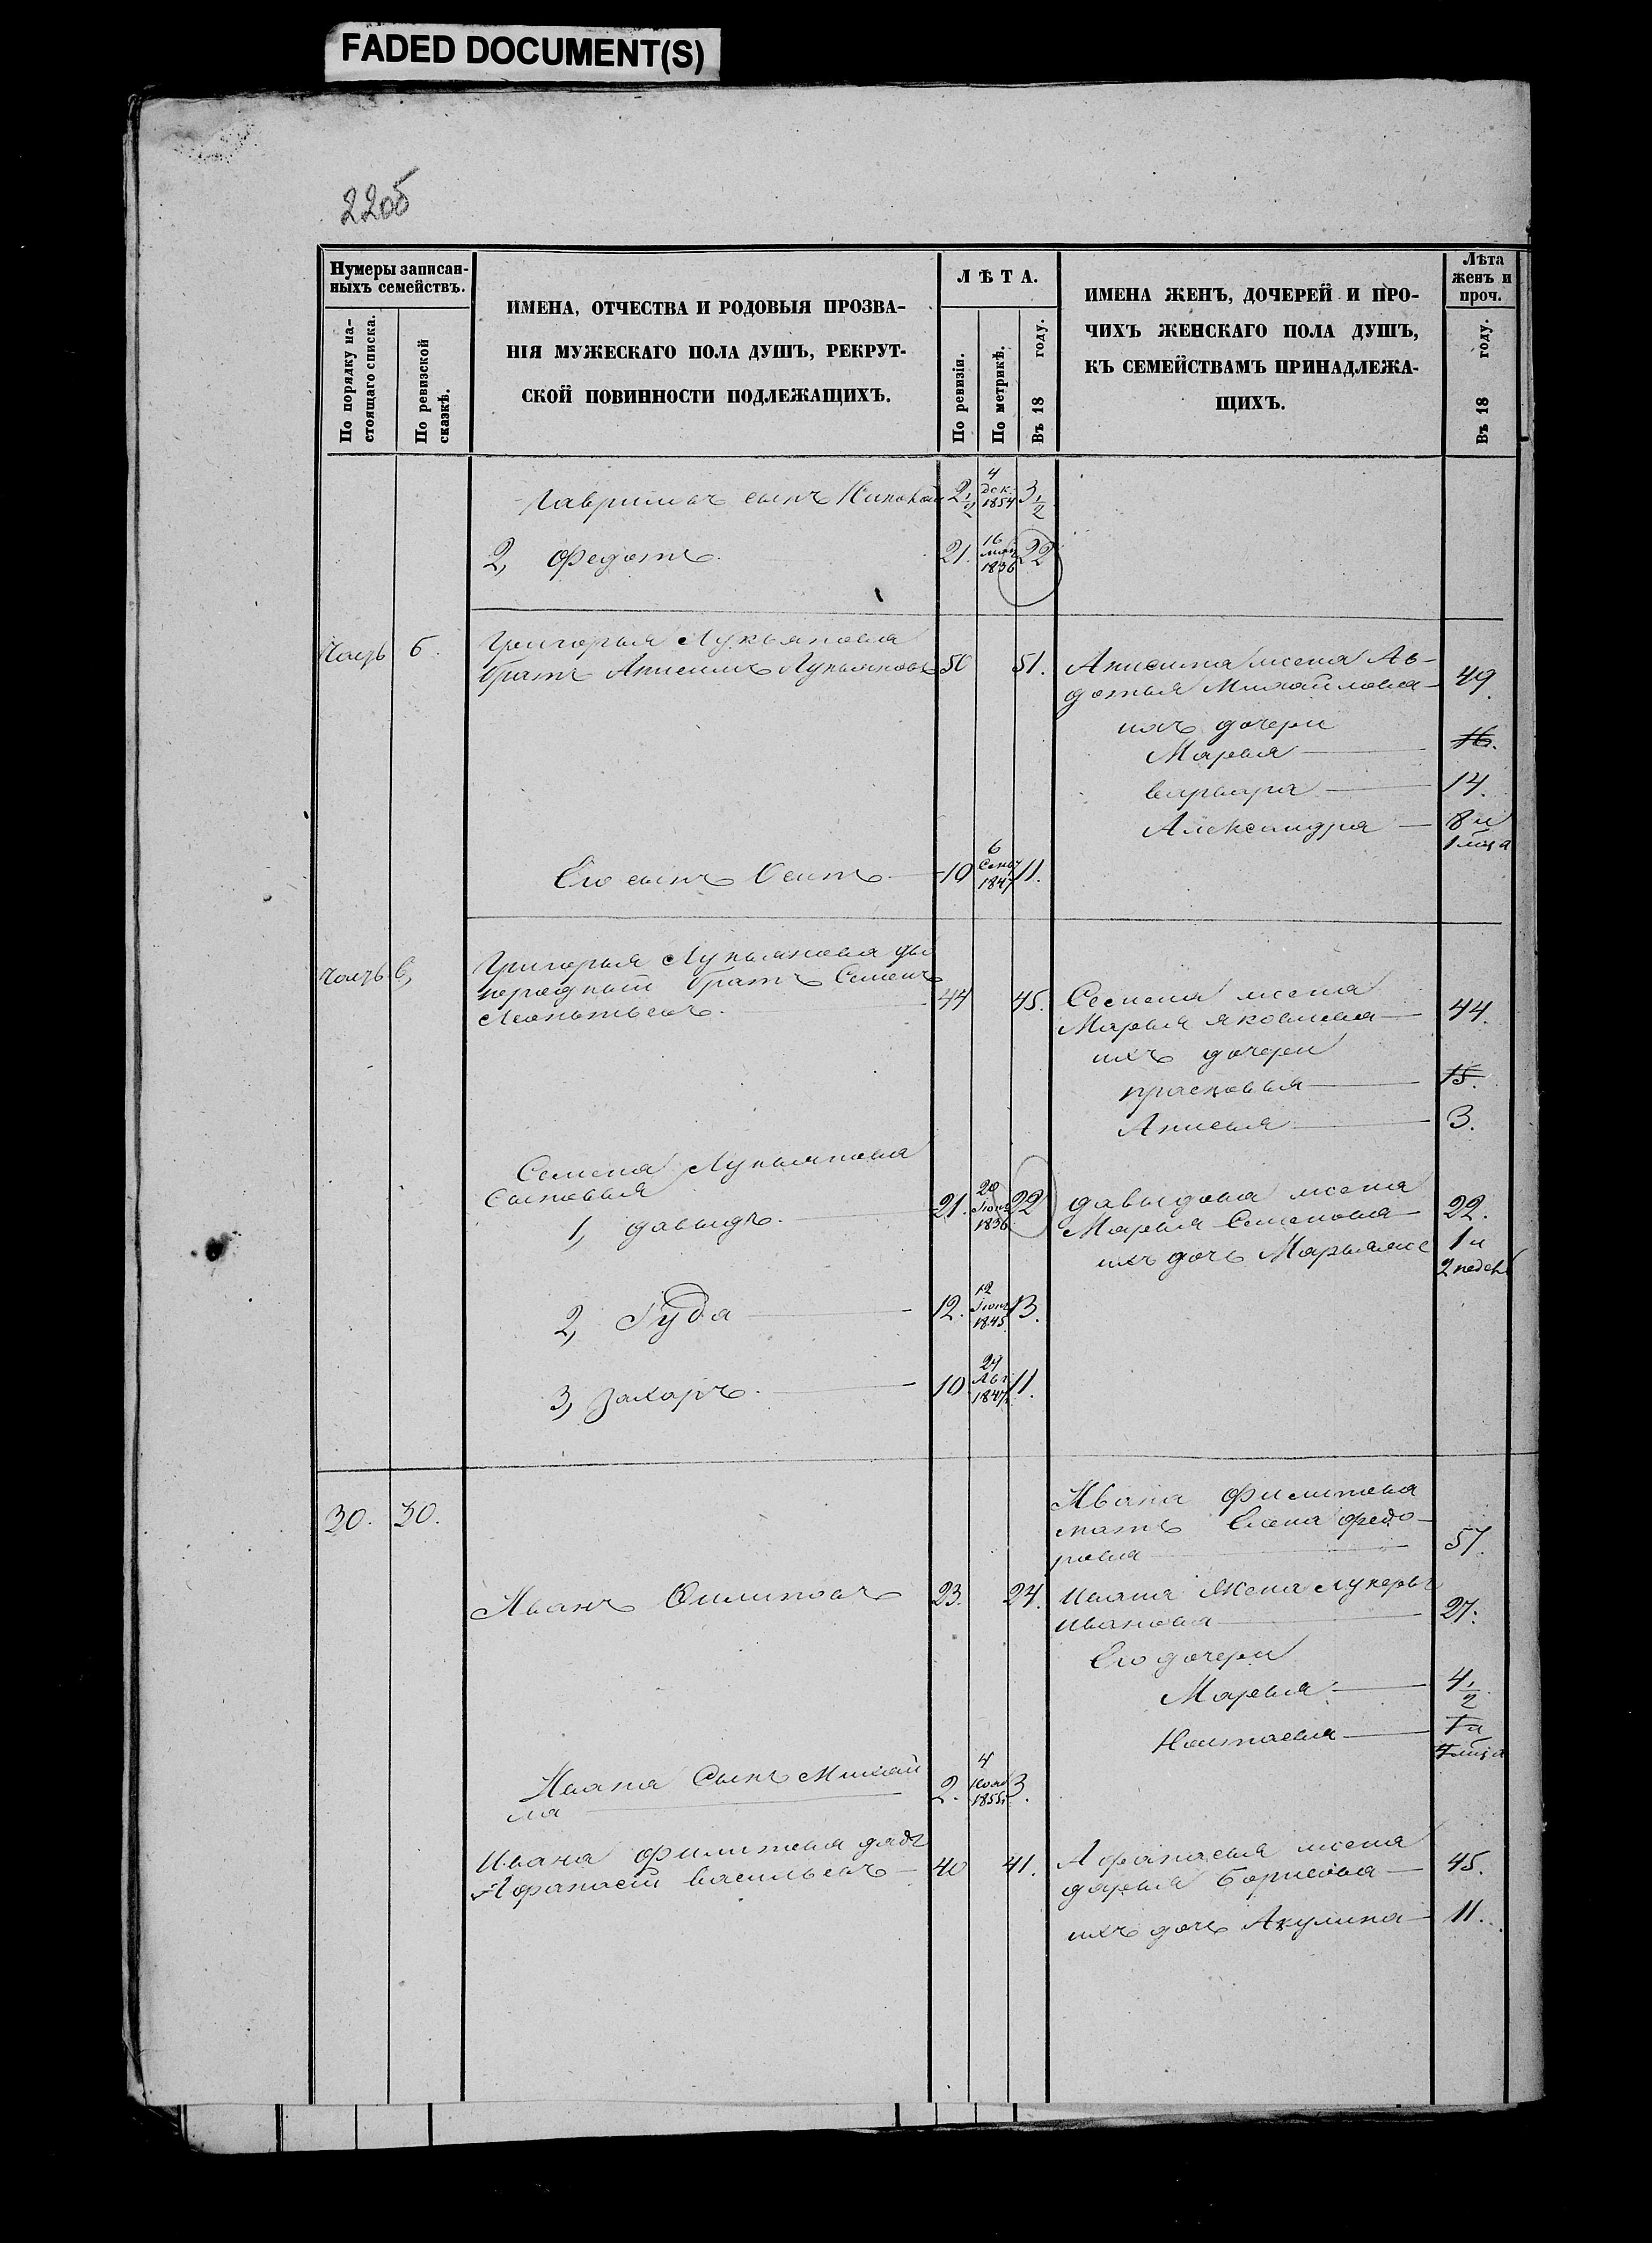 FADED DOCUMENT(S)
22об
Нумеры записан-
ныхъ семействъ.
По порядку на-
стоящаго списка.
По ревизской
сказкѣ.
ИМЕНА, ОТЧЕСТВА И РОДОВЫЯ ПРОЗВА-
НІЯ МУЖЕСКАГО ПОЛА ДУШЪ, РЕКРУТ-
СКОЙ ПОВИННОСТИ ПОДЛЕЖАЩИХЪ.
ЛѢТА.
По ревизіи.
По метрикѣ.
Въ 18 году.
ИМЕНА ЖЕНЪ, ДОЧЕРЕЙ И ПРО-
ЧИХЪ ЖЕНСКАГО ПОЛА ДУШЪ,
КЪ СЕМЕЙСТВАМЪ ПРИНАДЛЕЖА-
ЩИХЪ.
Лѣта
женъ и
проч.
Въ 18 году.
сынъ Николай 2 1/2 4 дек. 1854 3 1/2
2, Федотъ 21. 16 1836 22
б. Григорья Лукьянова
братъ Анисимъ Лукьяновъ 50 51. Анисима жена Ав-
дотья Михайлова 49.
ихъ дочери
Марья 16.
Варвара 14.
Александра 8 и
1 мѣса
Его сынъ Осипъ 10 6 1847 11.
в, Григорья Лукьянова дво
юродный братъ Семенъ
Леонтьевъ. 44 45. Семена жена
Марья Яковлева 44.
ихъ дочери
Прасковья 15.
Анисья 3.
Семена Лукьянова
Сыновья
1, Давыдъ. 21. 20 Іюня 1836 22 Давыдова жена
Марья Семенова 22.
ихъ дочь Марья 1 и
2 недел
2, Іуда 12. 12 Іюня 1845 13.
3, Захаръ. 10 24 Авг. 1847 11.
30. 30. Ивана Филипова
мать Елена Федо-
рова 57.
Иванъ Филиповъ 23. 24. Ивана Жена Лукерья
Иванова 27.
Его дочери
Марья 4 1/2
Настасья 1 и
Ивана Сынъ Михай
ла 2. 4 Нояб 1855 3.
Ивана Филипова дядя
Афанасій Васильевъ 40 41. Афанасья жена
Дарья Борисова 45.
ихъ дочь Акулина 11.